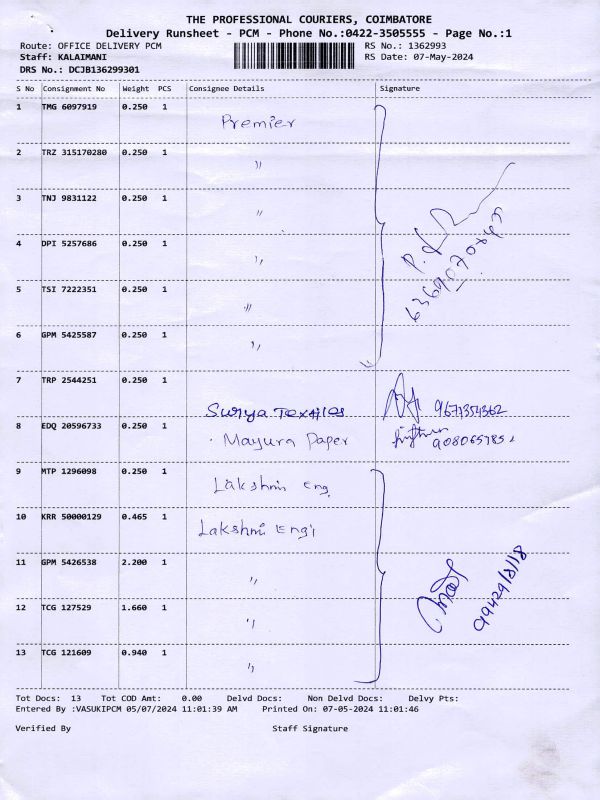 THE PROFESSIONAL COURIERS, COIMBATORE
Delivery Runsheet - PCM - Phone No.:0422-3505555 - Page No.:1
Route: OFFICE DELIVERY PCM RS No.: 1362993
Staff: KALAIMANI RS Date: 07-May-2024
DRS No.: DCJB136299301
S No Consignment No Weight PCS Consignee Details Signature
1 TMG 6097919 0.250 1 Premier
2 TRZ 315170280 0.250 1 "
3 TNJ 9831122 0.250 1 "
4 DPI 5257686 0.250 1 "
5 TSI 7222351 0.250 1 "
6 GPM 5425587 0.250 1 "
7 TRP 2544251 0.250 1 Surya Textiles
8 EDQ 20596733 0.250 1 Mayura Paper
9 MTP 1296098 0.250 1 Lakshmi Eng
10 KRR 50000129 0.465 1 Lakshmi Engi
11 GPM 5426538 2.200 1 "
12 TCG 127529 1.660 1 "
13 TCG 121609 0.940 1 "
Tot Docs: 13 Tot COD Amt: 0.00 Delvd Docs: Non Delvd Docs: Delvy Pts:
Entered By :VASUKIPCM 05/07/2024 11:01:39 AM Printed On: 07-05-2024 11:01:46
Verified By Staff Signature